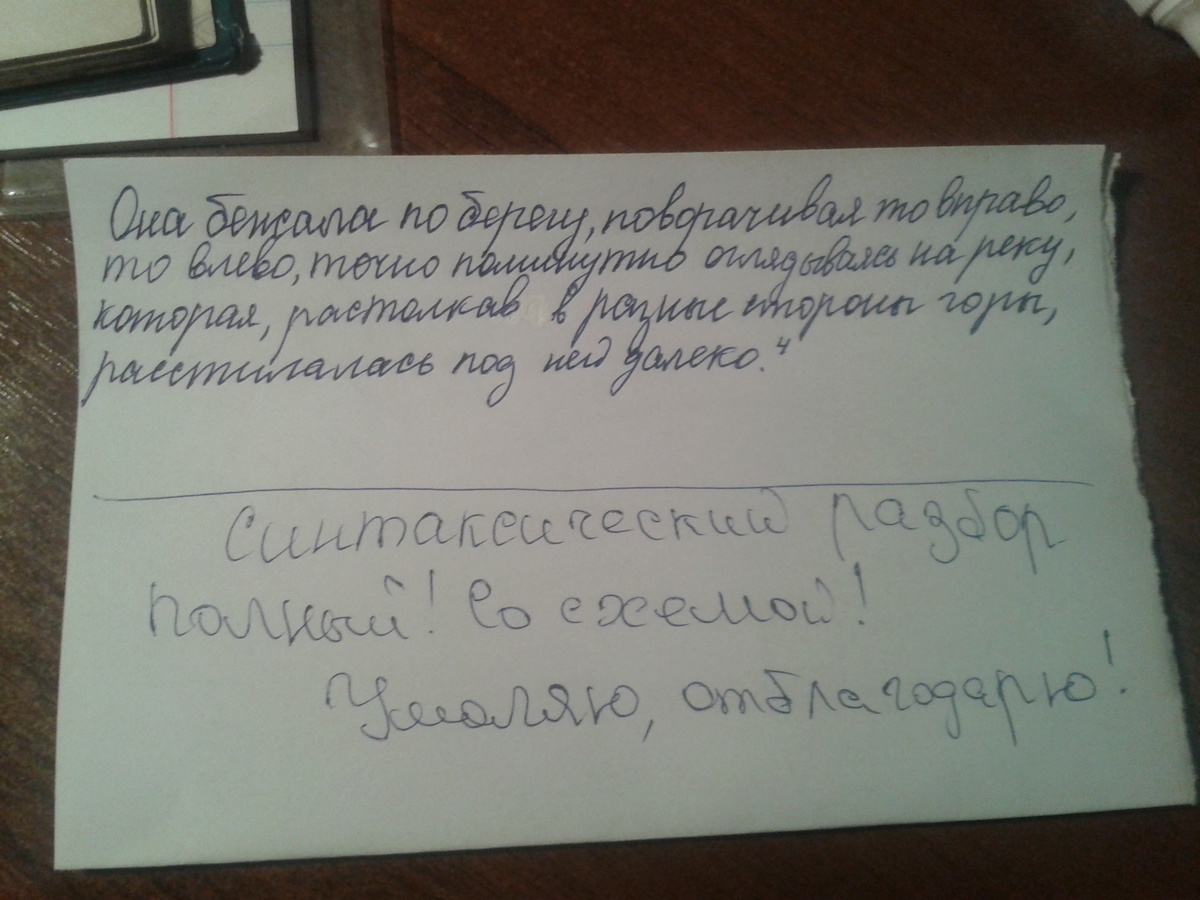 Она бежала по берегу, поворачивая то вправо,
то влево, точно поминутно оглядываясь на реку,
которая, растолкав в разные стороны горы,
расстилалась под ней далеко.⁴
Синтаксический разбор
полный! Со схемой!
Умоляю, отблагодарю!